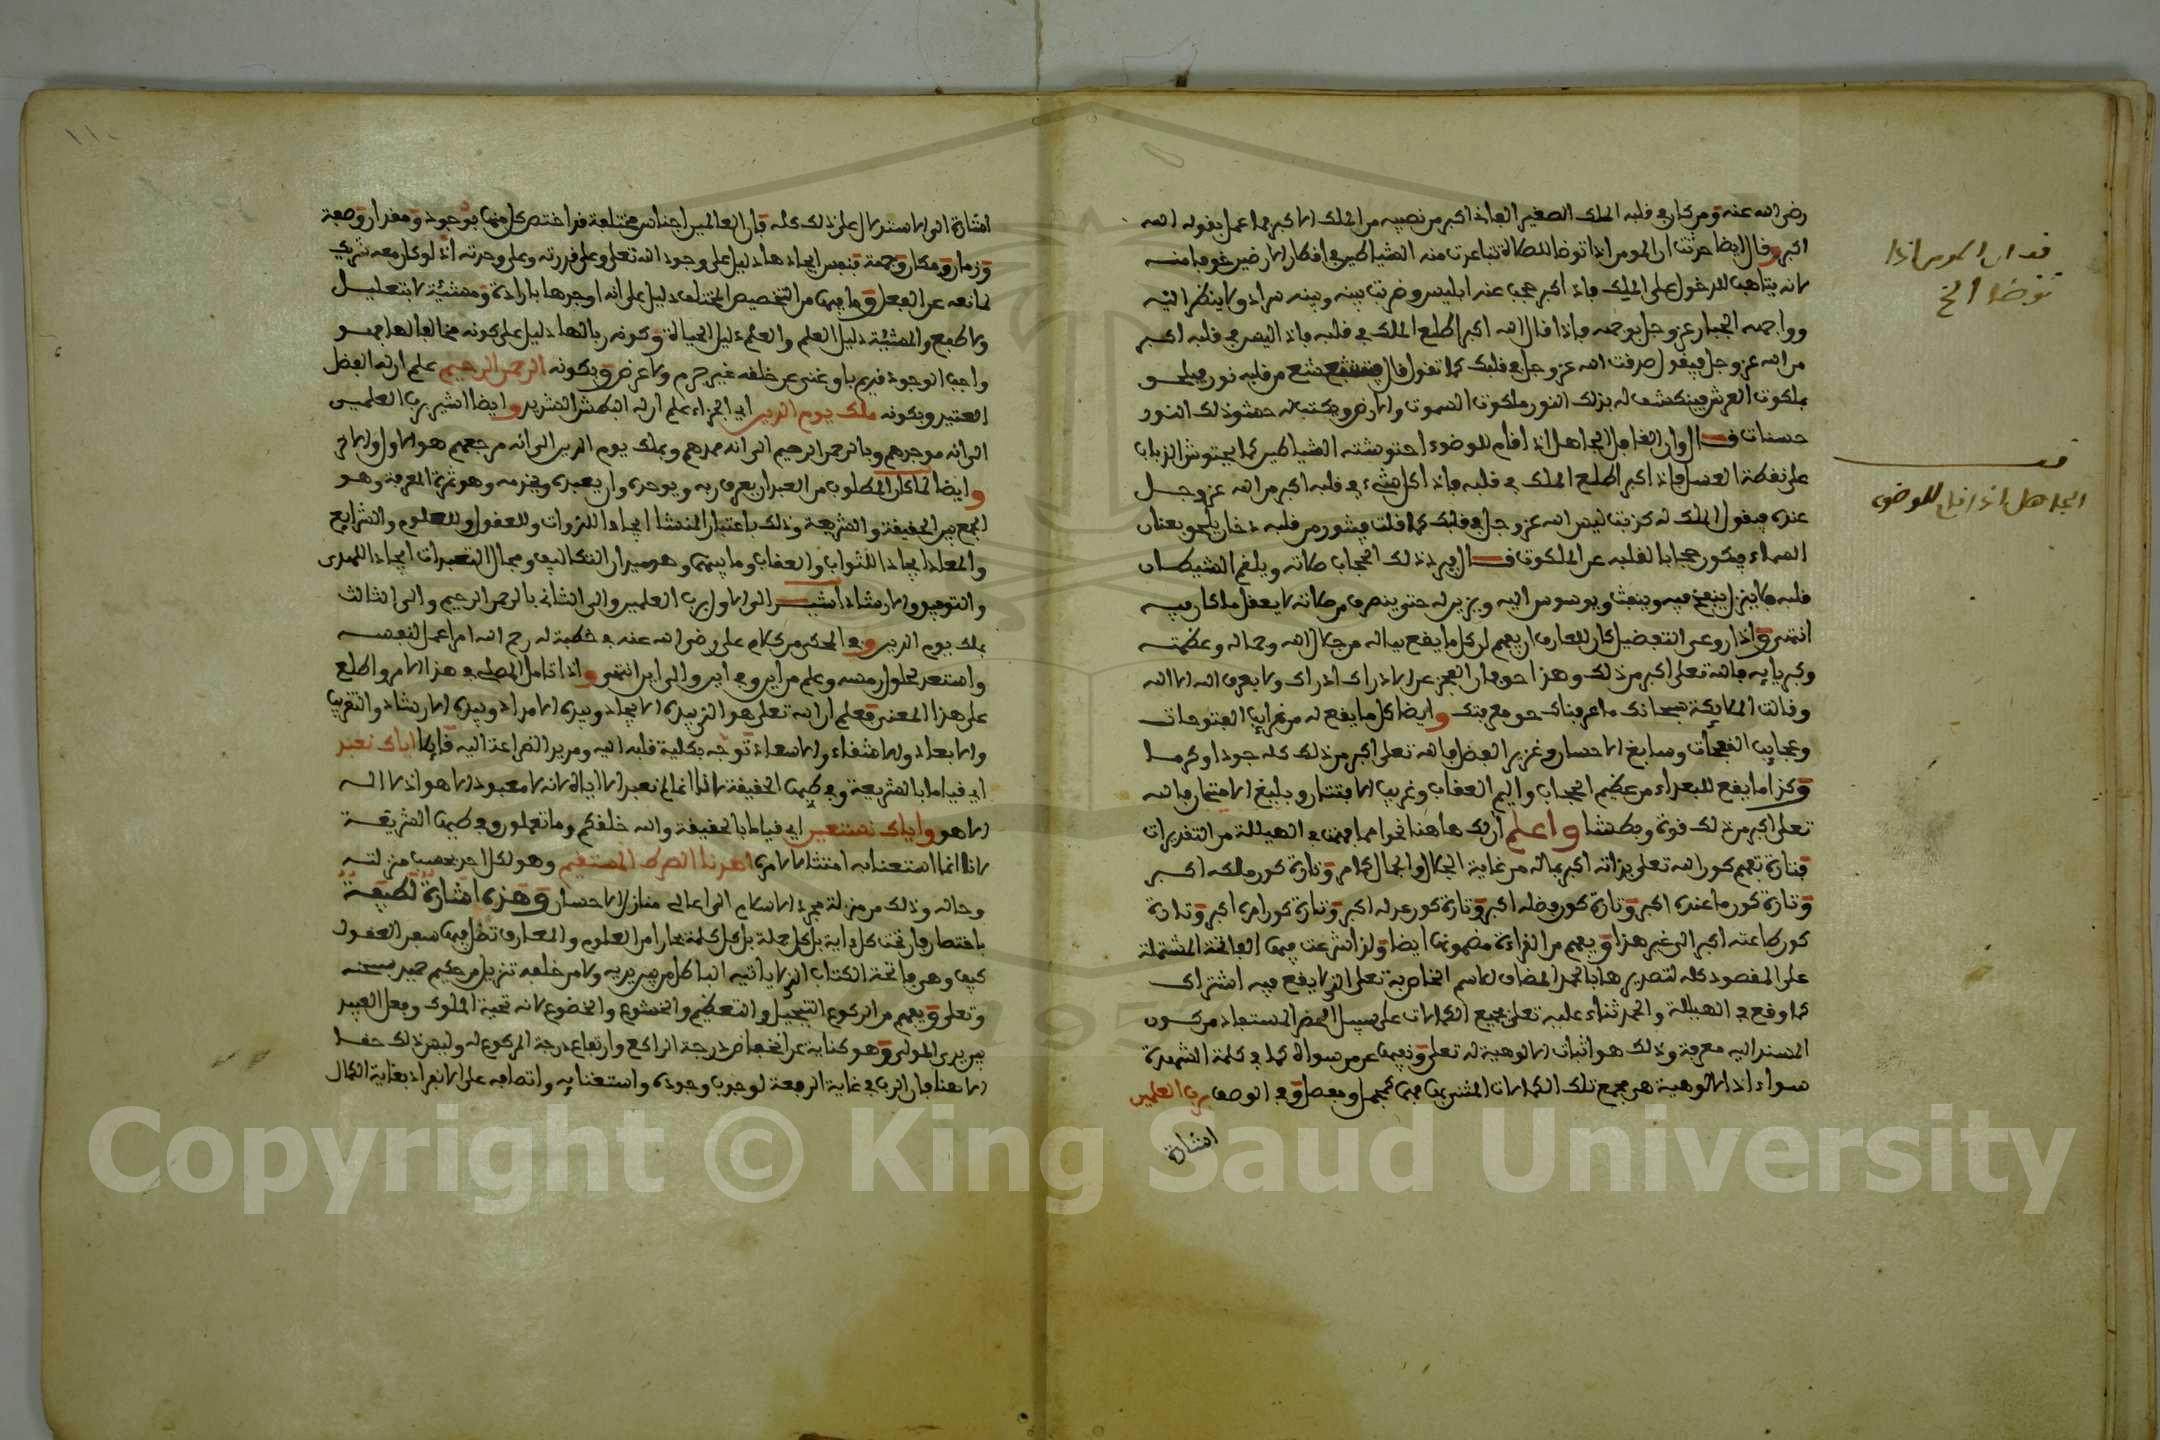 رضي الله عنه ومن كان في قلبه الملك الصغير الفاني اكبر من نصيبه من الملك الاكبر فما عمل بقوله الله
اكبر وقال ايضا حدثت ان المومن اذا توضا للصلاة تباعدت منه الشياطين في افكار الارض خوفا منه
لانه يتاهب للدخول على الملك فاذا كبر حجب عنه ابليس وضرب بينه وبينه سرادق لا ينظر اليه
وواجهه الجبار عز وجل بوجهه فاذا قال الله اكبر اطلع الملك في قلبه فاذا ليس في قلبه اكبر
من الله عز وجل فيقول صدقت الله عز وجل في قلبك كما تقول قال فتشعشع من قلبه نور يلحق
بملكوت العرش فينكشف له بذلك النور ملكوت السموات والارض ويكتب له حشو ذلك النور
حسنات قال وان الغافل الجاهل اذا قام للوضوء احتوشته الشياطين كما يحتوش الذباب
على نقطة العسل فاذا كبر اطلع الملك في قلبه فاذا كل شيء في قلبه اكبر من الله عز وجل
عنده فيقول الملك له كذبت ليس الله عز وجل في قلبك كما قلت فيثور من قلبه دخان يلحق بعنان
السماء فيكون حجابا لقلبه عن الملكوت قال فيرد ذلك الحجاب صلاته ويلقم الشيطان
قلبه فلا يزال ينفخ فيه وينفث ويوسوس اليه ويزين له حتى ينصرف من صلاته لا يعقل ما كان فيه
انتهى واذا روعي التفضيل كان للعارف ان يفهم ان كل ما يقع بباله من جلال الله وجماله وعظمته
وكبريايه فالله تعلى اكبر من ذلك وهذا حق فان العجز عن الادراك ادراك ولا يعرف الله الا الله
وقالت الملايكة سبحانك ما عرفناك حق معرفتك وايضا كل ما يقع له من غرايب الفتوحات
وعجايب النفحات وسابغ الاحسان وغزير الفضل فالله تعلى اكبر من ذلك كله جودا وكرما
وكذا ما يقع للبعداء من عظيم الحجاب واليم العقاب وغريب الافتتان وبليغ الامتحان فالله
تعلى اكبر من ذلك قوة وبطشا واعلم ان لك هاهنا نحوا مما فهمت في الهيللة من التقديرات
فتارة تفهم كون الله تعلى بذاته اكبر بماله من غاية الجلال والجمال كما مر وتارة كون ملكه اكبر
وتارة كون ما عنده اكبر وتارة كون فضله اكبر وتارة كون عدله اكبر وتارة كون امره اكبر وتارة
كون طاعته اكبر الى غير هذا ويفهم من القراءة مضمونها ايضا ولذا شرعت فيها الفاتحة المشتملة
على المقصود كله لتصديرها بالحمد المضاف للاسم الخاص به تعلى الذي لا يقع فيه اشتراك
كما وقع في الهيللة والحمد ثناء عليه تعلى بجميع الكمالات على سبيل الحصر المستفاد من كون
المسند اليه معرفة وذلك هو اثبات الالوهية له تعلى ونفيها عن من سواه كما في كلمة الشهادة
سواء اذ الالوهية هي مجمع تلك الكمالات المشير بها فيها مجمل ومفصل وفي الوصف برب العلمين
اشارة
قد ان المومن اذا
توضا الخ
قد
الجاهل اذا قام للوضوء
١١٠
اشارة الى الاستدلال على ذلك كله فان العالمين اجناس مختلفة قد اختص كل منها بوجود ومقدار وصفة
وزمان ومكان وجهة فنفس ايجادها دليل على وجود الله تعلى وعلى قدرته وعلى وحدته اذ لو كان معه شريك
لمانعه عن الفعل وما فيها من التخصيص المختلف دليل على انه اوجدها بارادة ومشيئة لا بتعليل
ولا طبع والمشيئة دليل العلم والعلم دليل الحياة وكونه ربا لها دليل على كونه مخالفا لها فهو
واجب الوجود قديم باق غني عن خلقه غير جرم ولا عرض وبكونه الرحمن الرحيم علم ان له الفضل
العتيد وبكونه ملك يوم الدين اي الجزاء علم ان له البطش الشديد وايضا اشير برب العلمين
الى انه موجدهم وبالرحمن الرحيم الى انه ممدهم وبملك يوم الدين الى انه مرجعهم هو الاول والاخر
وايضا لما كان المطلوب من العبد ان يعرف ربه ويوحده وان يعبده ويخدمه وهو ثمرة المعرفة وهو
الجمع بين الحقيقة والشريعة وذلك باعتبار المنشا ايجادا للذوات وللعقول وللعلوم والشرايع
والمعاد ايجادا للثواب والعقاب وما بينهما وهو ميدان التكاليف ومجال التعبدات ايجادا للهدى
والتوفيق والارشاد اشير الى الاول برب العلمين والى الثاني بالرحمن الرحيم والى الثالث
بملك يوم الدين وفي المحكي من كلام علي رضي الله عنه في خطبة له رحم الله امرا عمل لنفسه
واستعد لحلول رمسه وعلم من اين وفي اين والى اين انتهى واذا تامل المصلي في هذا الامر واطلع
على هذا المعنى فعلم ان الله تعلى هو الذي بيده الايجاد وبيده الامداد وبيده الارشاد والتقريب
والابعاد والاشقاء والاسعاد توجه بكلية قلبه اليه ومد يد الضراعة اليه قايلا اياك نعبد
اي قياما بالشريعة وفي طيها الحقيقة لانا انما لم نعبد الا اياه لانه لا معبود الا هو اذ لا اله
الا هو واياك نستعين اي قياما بالحقيقة والله خلقكم وما تعملون وفي طيها الشريعة
لانا انما استعنا به امتثالا لامره اهدنا الصرط المستقيم وهو لكل احد بحسب منزلته
وحاله وذلك من منزلة مجرد الاسلام الى اعالي منازل الاحسان وهذه اشارة لطيفة
باختصار فان تحت كل ءاية بل كل جملة بل كل كلمة بحارا من العلوم والمعارف تظل فيها سفن العقول
كيف وهي فاتحة الكتاب الذي لا ياتيه الباطل من بين يديه ولا من خلفه تنزيل من حكيم حميد سبحنه
وتعلى ويفهم من الركوع التبجيل والتعظيم والخشوع والخضوع لانه تحية الملوك وفعل العبيد
بين يدي المولى وهو كناية عن انخفاض درجة الراكع وارتفاع درجة المركوع له وليس ذلك حقا
الا هنا فان الرب في غاية الرفعة لوجوب وجوده واستغنايه واتصافه على الانفراد بغاية الكمال
Copyright © King Saud University